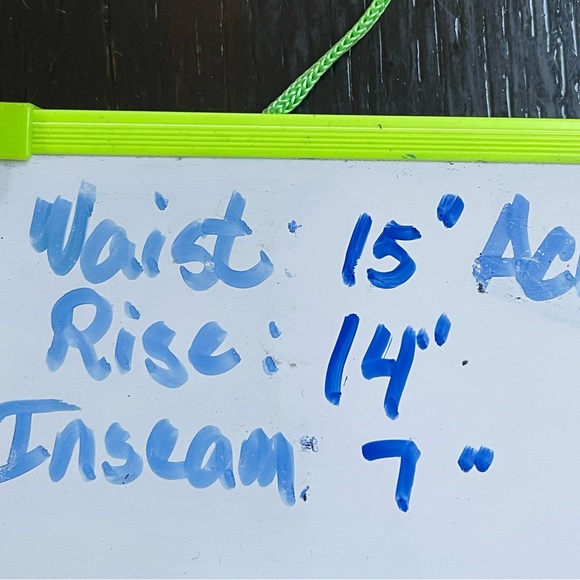 Waist: 15"
Rise: 14"
Inseam 7"